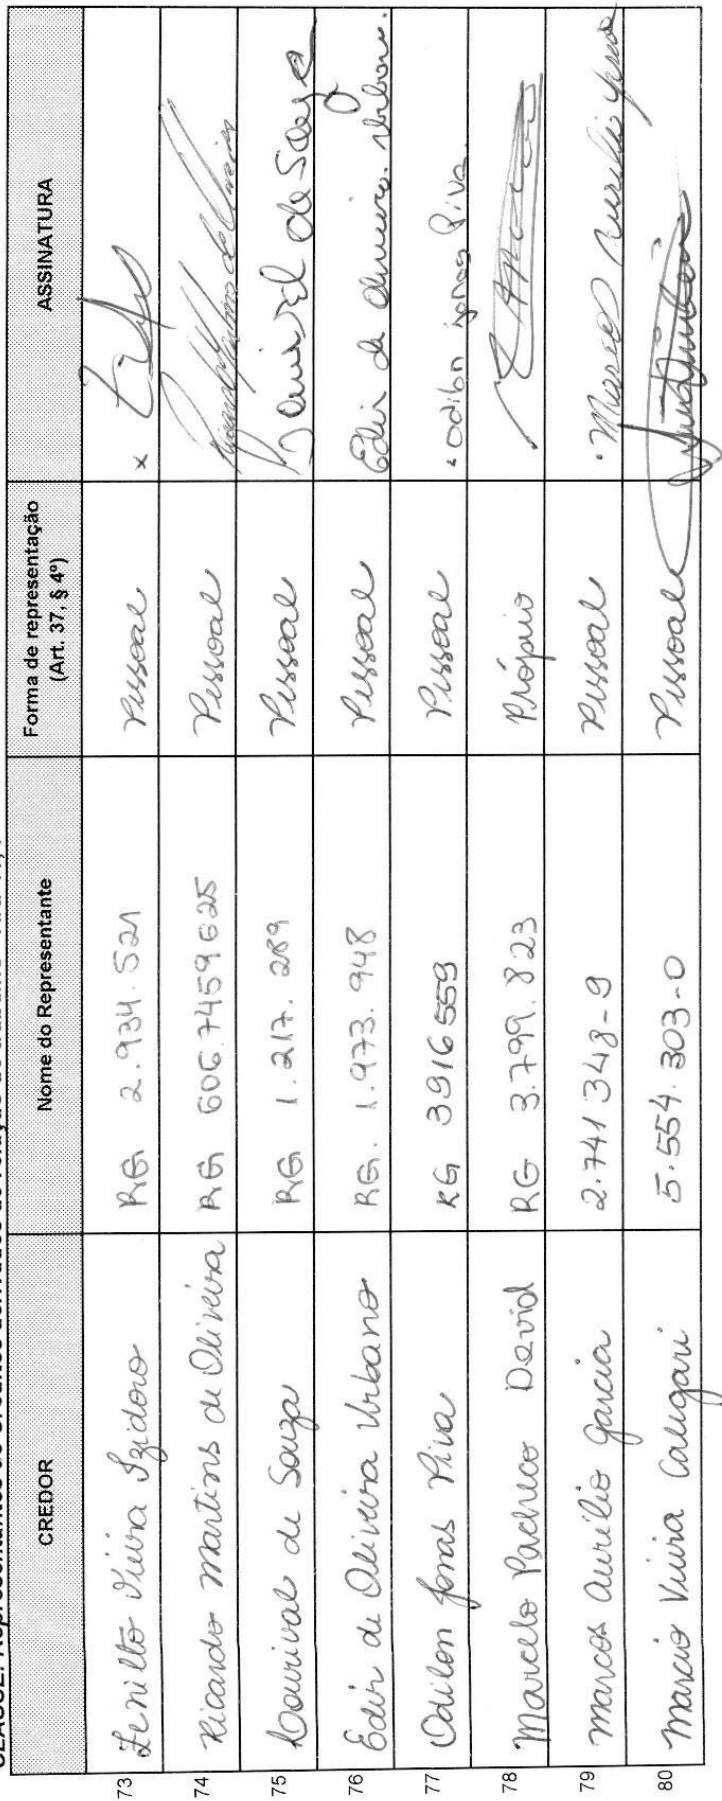 CREDOR Nome do Representante Forma de representação ASSINATURA
(Art. 37, § 4º)
73 Zenilto Vieira Izidoro RG 2.934.521 Pessoal x
74 Ricardo Martins de Oliveira RG 606.7459625 Pessoal
75 Lourival de Souza RG 1.217.289 Pessoal Lourival de Souza
76 Edir de Oliveira Urbano RG. 1.973.948 Pessoal Edir de Oliveira Urbano.
77 Odilon Jonas Piva RG 3916559 Pessoal Odilon Jonas Piva
78 Marcelo Pacheco David RG 3.799.823 Próprio
79 Marcos Aurélio Garcia 2.741 348-9 Pessoal Marcos Aurelio
80 Marcio Vieira Caligari 5.554.303-0 Pessoal